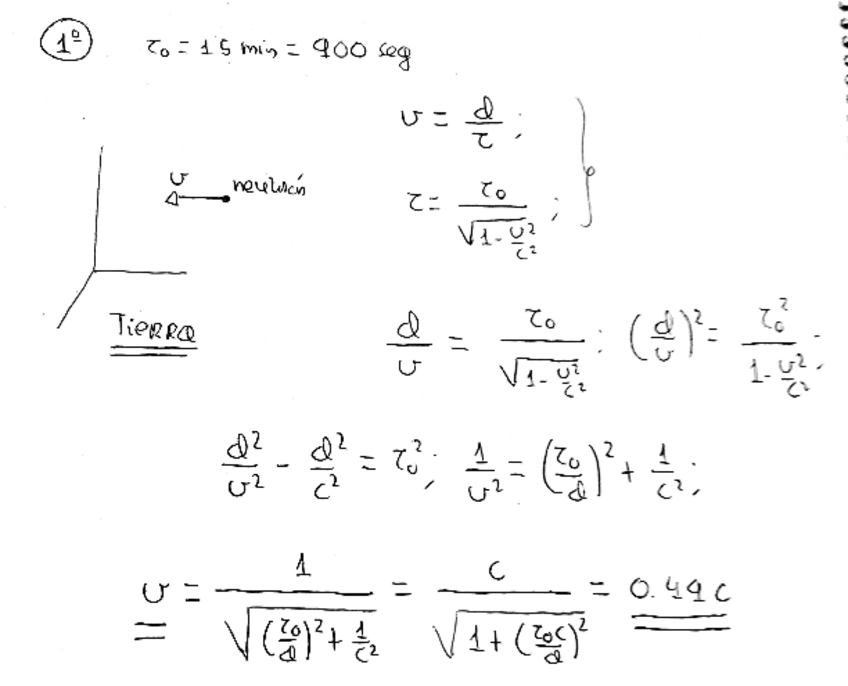 1º τ₀ = 15 min = 900 seg
v = d/τ ;
v neutrón
τ = τ₀/√(1 - v²/c²) ;
Tierra
d/v = τ₀/√(1 - v²/c²) ; (d/v)² = τ₀²/(1 - v²/c²) ;
d²/v² - d²/c² = τ₀² ; 1/v² = (τ₀/d)² + 1/c² ;
v = 1/√((τ₀/d)² + 1/c²) = c/√(1 + (τ₀c/d)²) = 0.49 c